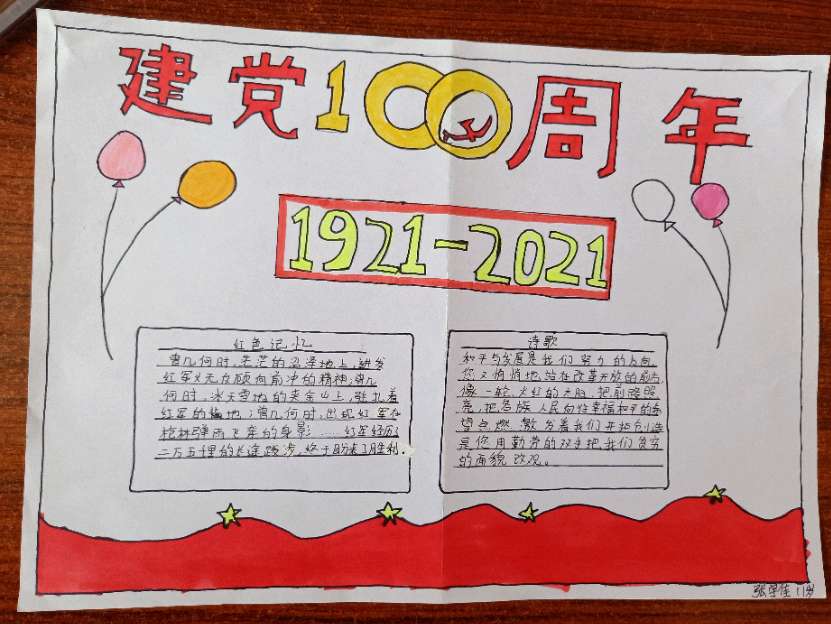 建党100周年
1921-2021
红色记忆
曾几何时,茫茫的沼泽地上,迸发
红军义无反顾向前冲的精神;曾几
何时,冰天雪地的夹金山上,驻扎着
红军的营地;曾几何时,出现红军在
枪林弹雨飞奔的身影……红军经历
二万五千里的长途跋涉,终于盼来了胜利.
诗歌
和平与发展是我们努力的方向
您又悄悄地站在改革开放的前沿
像一轮火红的太阳,把前路照
亮,把各族人民向往幸福和平的希
望点燃,激发着我们开拓创造
是您用勤劳的双手把我们贫穷
的面貌改观。